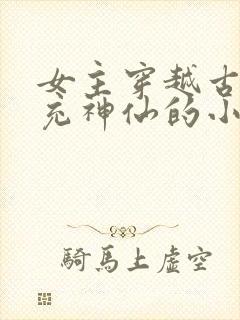 女主穿越古
充神仙的小
騎馬上虛空